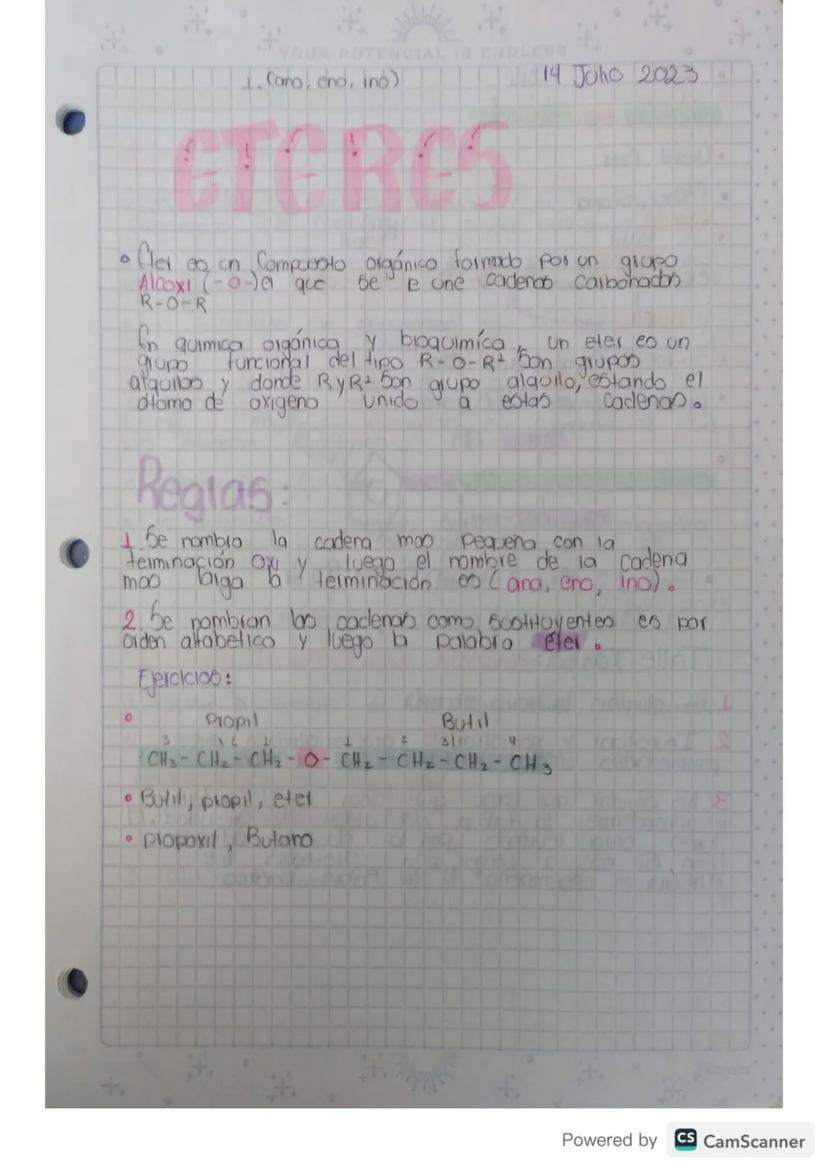 YOUR POTENCIAL IS ENDLESS
1. (ano, eno, ino)
14 Julio 2023
ETERES
Eter es un Compuesto orgánico formado por un grupo
Alcoxi (-O-) el que se le une cadenas carbonados
R-O-R
En quimica orgánica y bioquimíca, un eter es un
grupo funcional del tipo R-O-R¹ son grupos
alquilos y donde R y R¹ son grupo alquilo, estando el
átomo de oxigeno unido a estas cadenas.
Reglas:
1. Se nombra la cadena mas pequeña con la
terminación oxi y luego el nombre de la cadena
mas larga la terminación es (ano, eno, ino).
2. Se nombran las cadenas como sustituyentes es por
orden alfabetico y luego la palabra eter.
Ejercicios:
Propil Butil
3 2 1 1 2 3 4
CH₃-CH₂-CH₂-O-CH₂-CH₂-CH₂-CH₃
Butil, propil, eter
propoxil, Butano
Powered by CS CamScanner